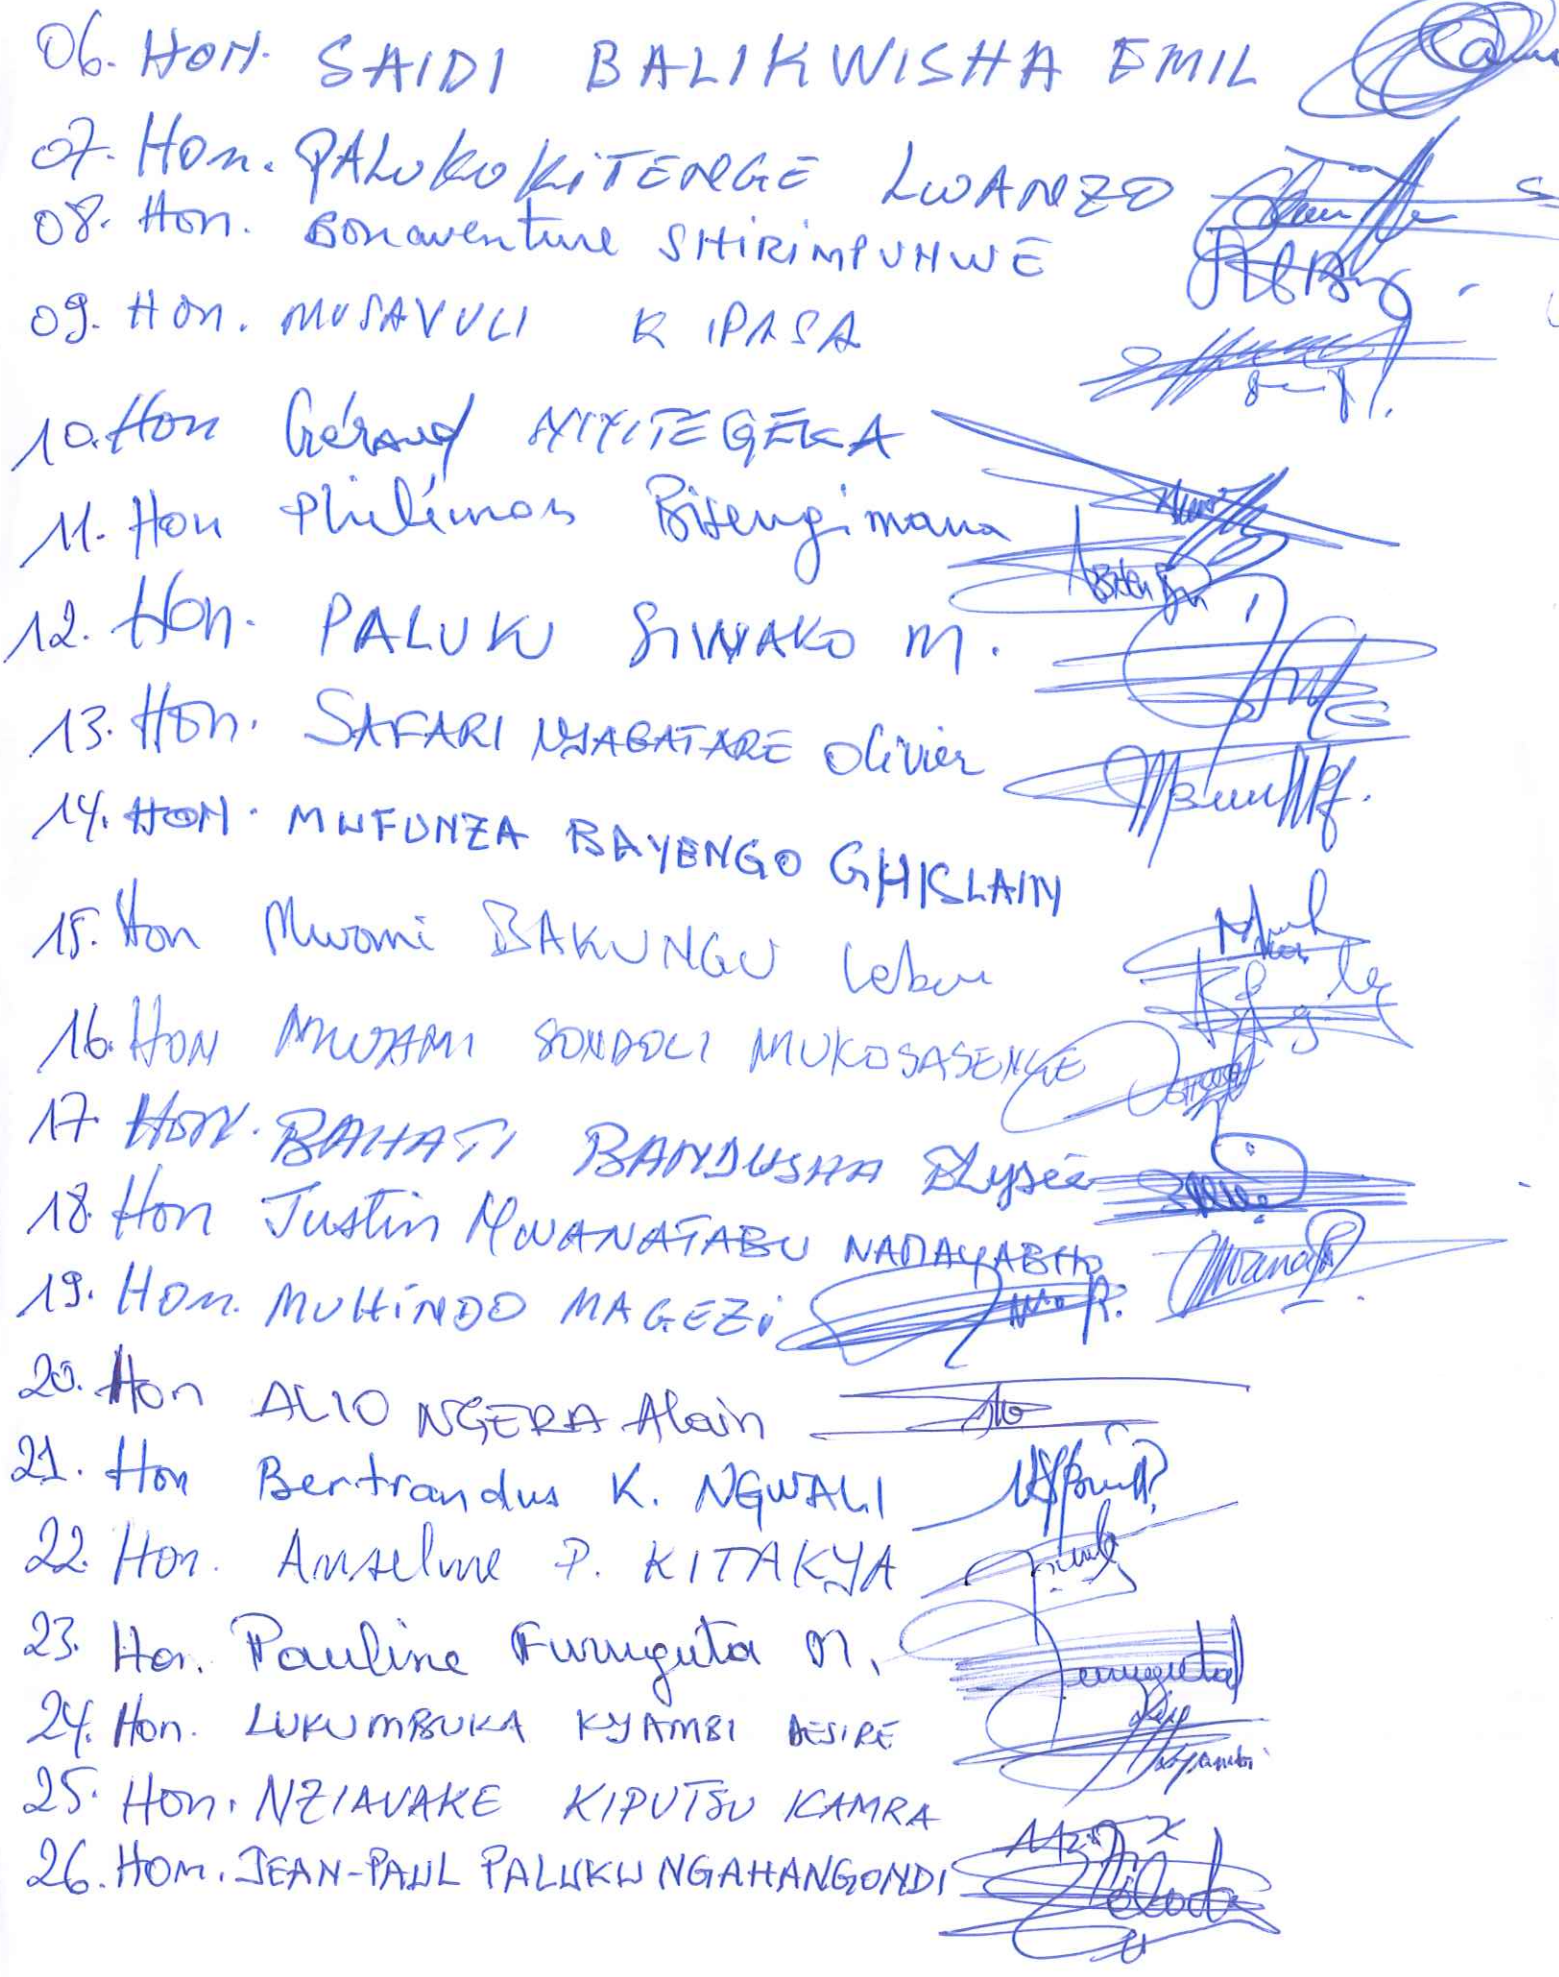 06. HON. SAIDI BALIKWISHA EMIL
07. Hon. PALUKU KITENGE LWANZO
08. Hon. Bonaventure SHIRIMPUHWE
09. Hon. MUSAVULI KIPASA
10. Hon Gérard NIYITEGEKA
11. Hon Philémon Bitengimana
12. Hon. PALUKU SIWAKO M.
13. Hon. SAFARI NYABATARE Olivier
14. HON. MUFUNZA BAYENGO GHISLAIN
15. Hon Mwami BAKUNGU
16. HON MWAMI SONDOLI MUKOSASENGE
17. Hon. BAHATI BANDUSHA Elysée
18. Hon Justin MWANATABU
19. Hon. MUHINDO MAGEZI
20. Hon ALIO NGERA Alain
21. Hon Bertrandus K. NGWALI
22. Hon. Anselme P. KITAKYA
23. Hon. Pauline Furuguta M.
24. Hon. LUKUMBUKA KYAMBI DESIRE
25. Hon. NZIAVAKE KIPUTSU KAMRA
26. Hon. JEAN-PAUL PALUKU NGAHANGONDI